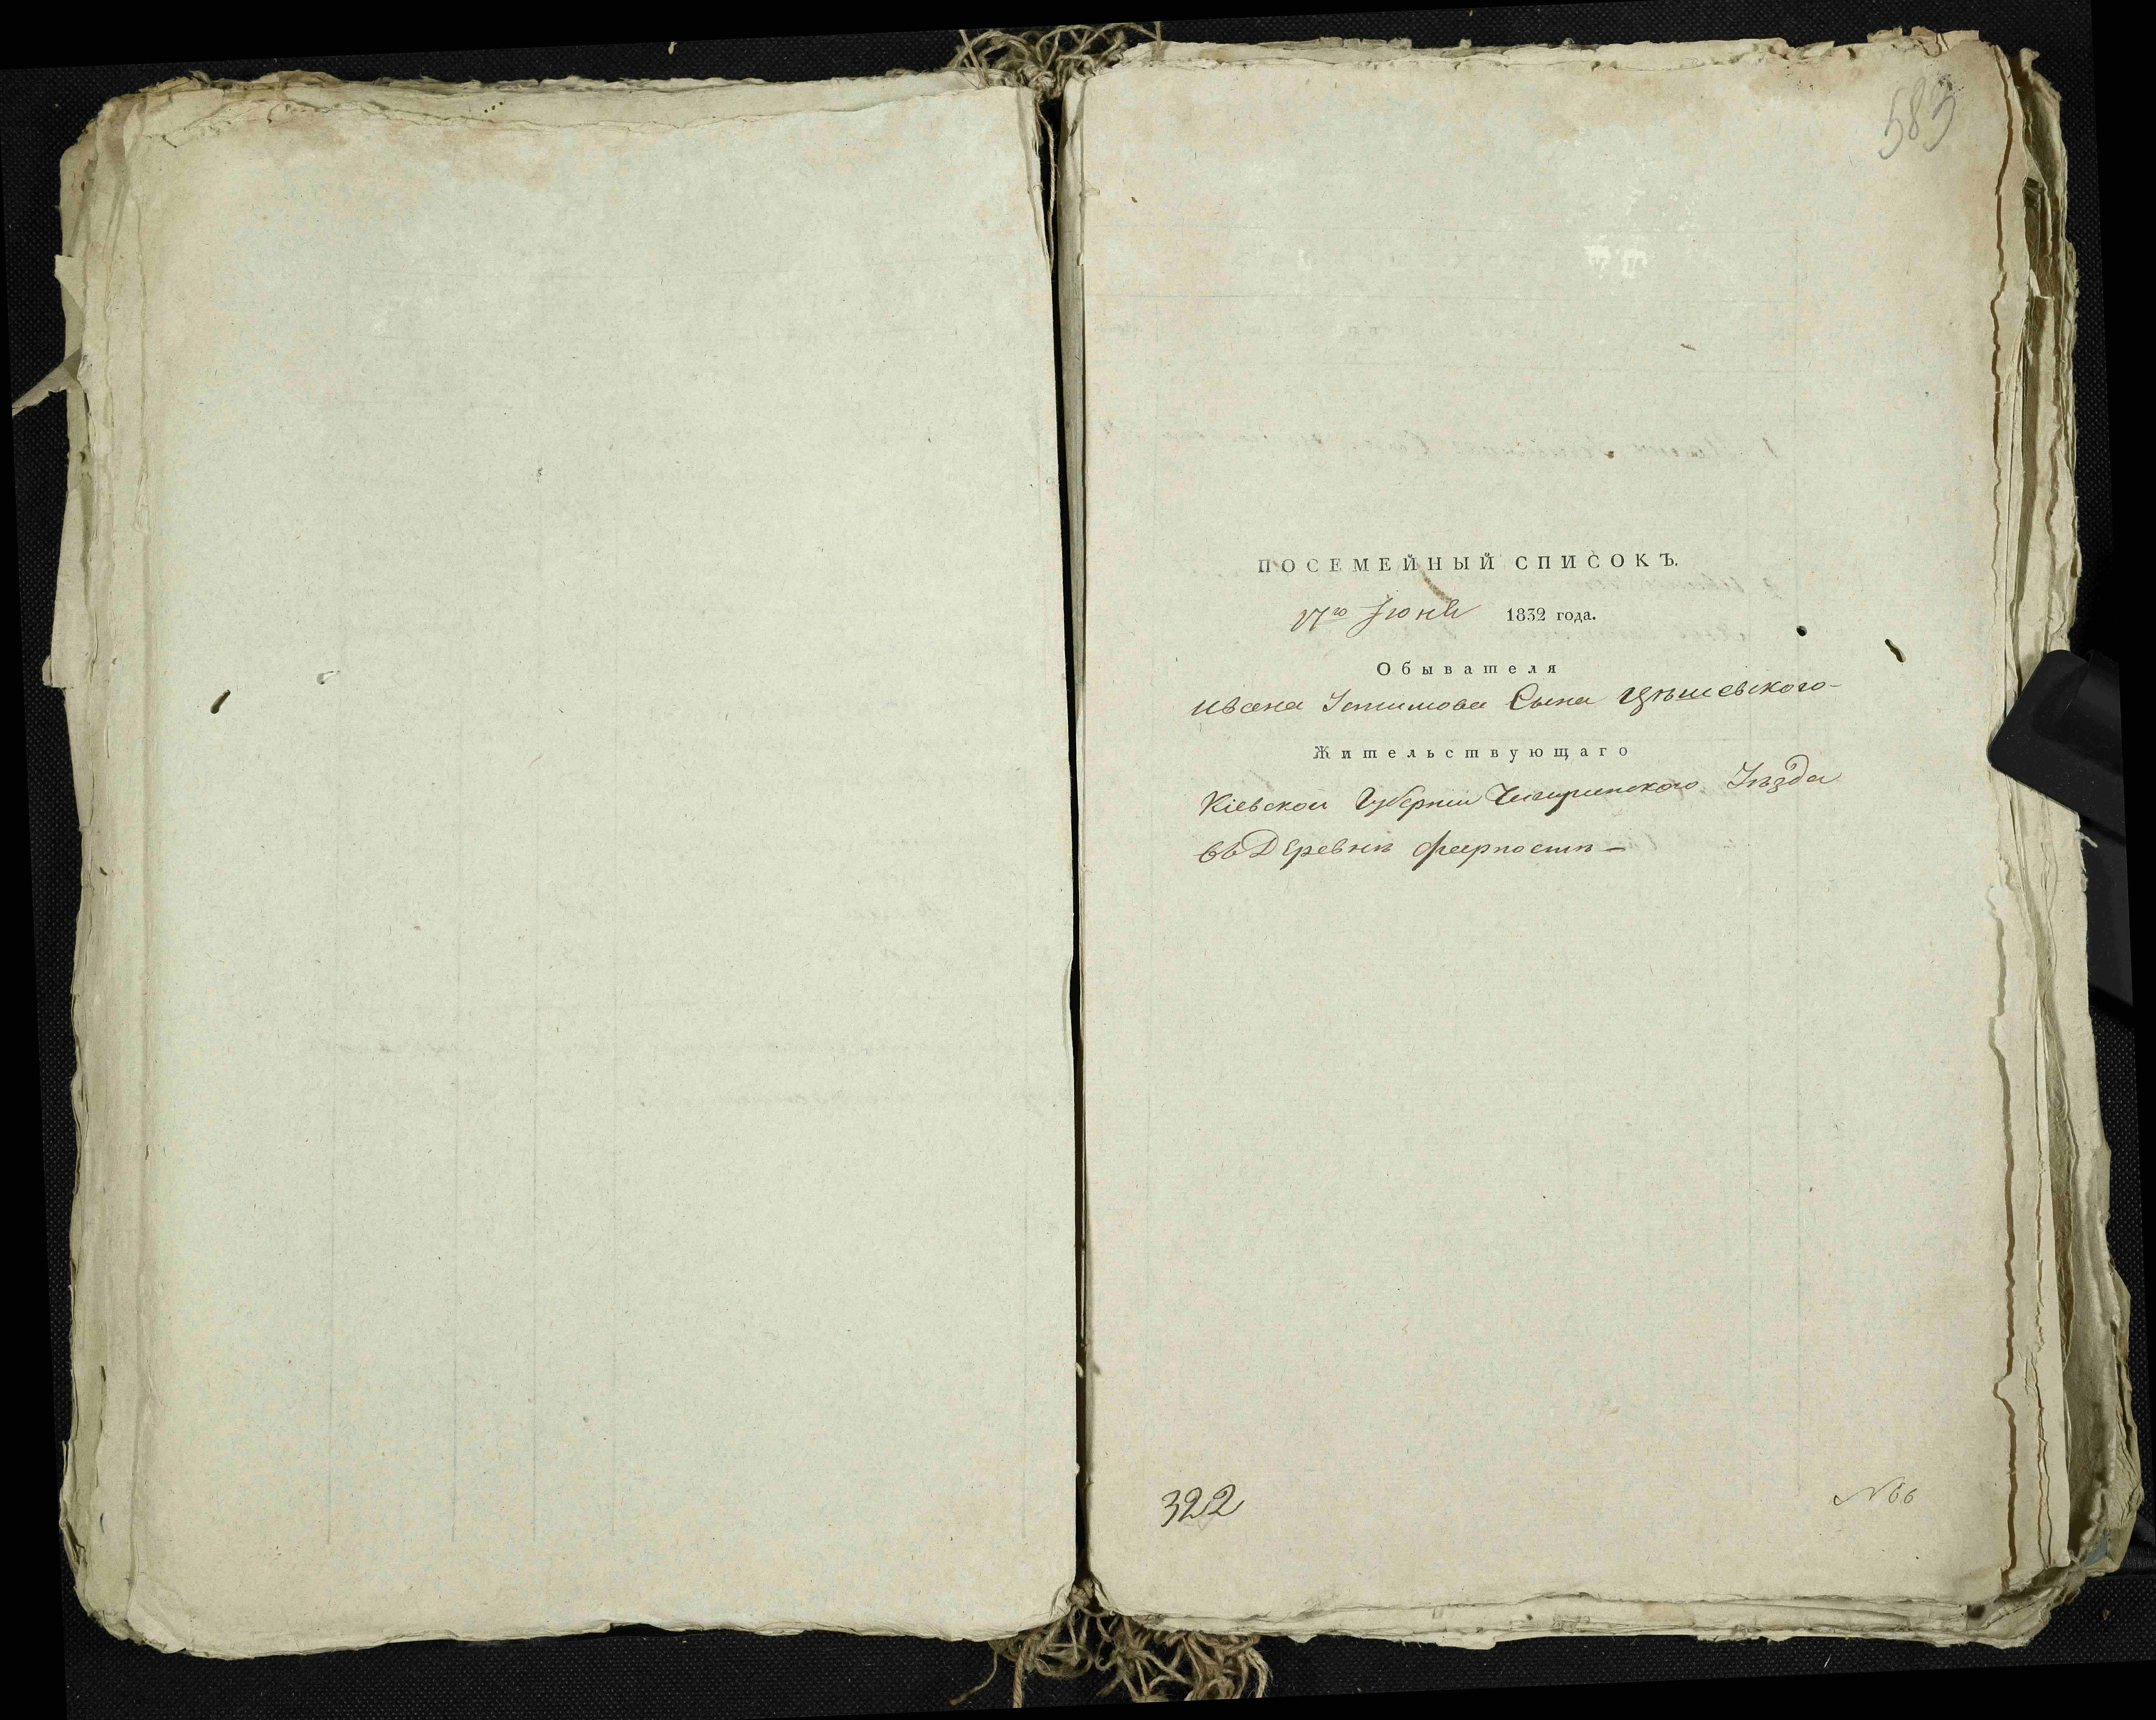 583
ПОСЕМЕЙНЫЙ СПИСОКЪ.
17го Іюня 1832 года.
Обывателя
Ивана Устимова Сына Цѣшевского
Жительствующаго
Кіевской Губерніи Чигиринского Уѣзда
въ Деревнѣ Фарпостѣ
322
№ 66